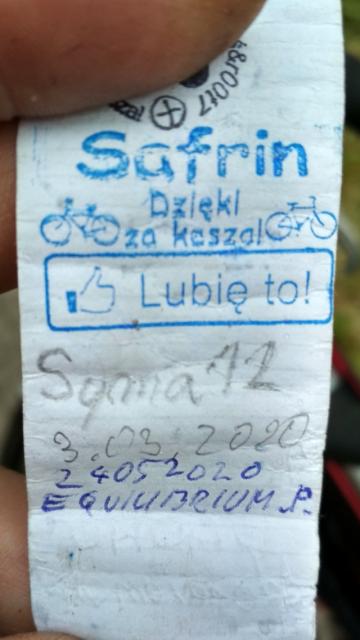 Safrin
Dzięki
za keszo!
Lubię to!
Sqma12
3.03.2020
24052020
EQUILIBRIUM.P.